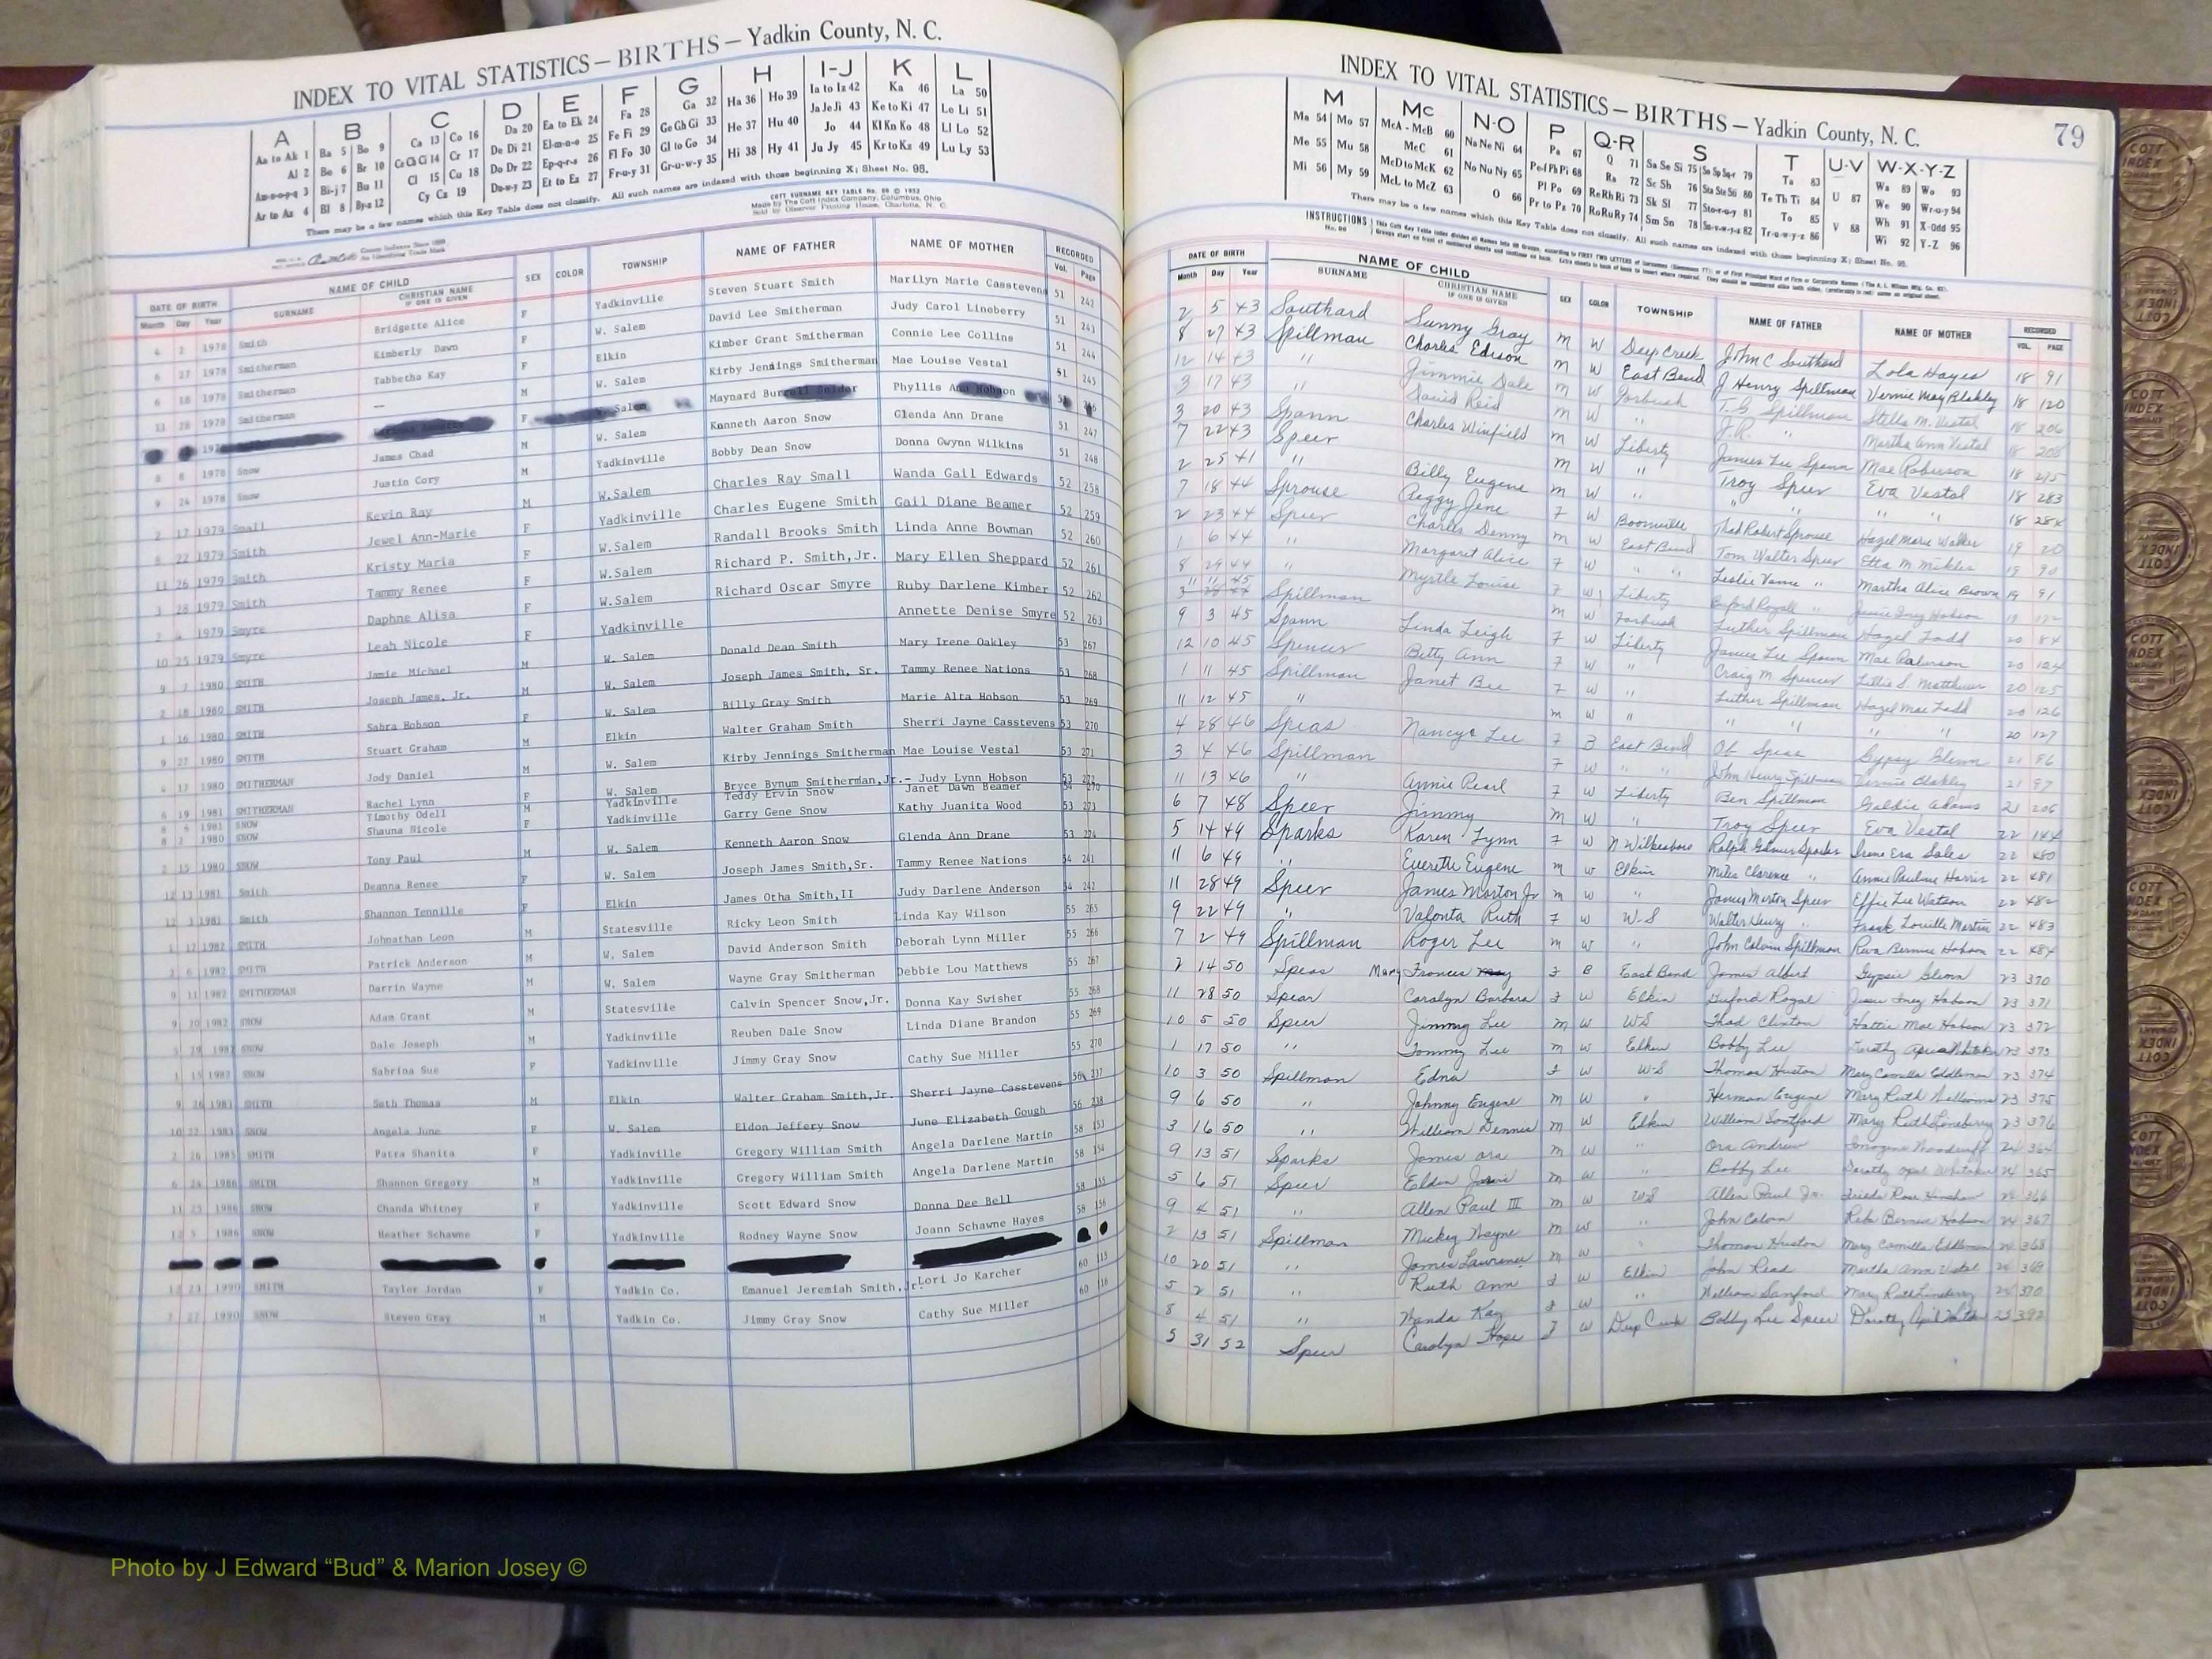 INDEX TO VITAL STATISTICS — BIRTHS — Yadkin County, N. C.
A B C D E F G H I-J K L
Aa to Ak 1 Ba 5 Bo 9 Ca 13 Co 16 Da 20 Ea to Ek 24 Fa 28 Ga 32 Ha 36 Ho 39 Ia to Iz 42 Ka 46 La 50
Al 2 Be 6 Br 10 Ce Ch Ci 14 Cr 17 De Di 21 El-m-n-o 25 Fe Fi 29 Ge Gh Gi 33 He 37 Hu 40 Ja Je Ji 43 Ke to Ki 47 Le Li 51
Am-n-o-p-q 3 Bi-j 7 Bu 11 Cl 15 Cu 18 Do Dr 22 Ep-q-r-s 26 Fl Fo 30 Gl to Go 34 Hi 38 Hy 41 Jo 44 Kl Kn Ko 48 Ll Lo 52
Ar to Az 4 Bl 8 By-z 12 Cy Cz 19 Du-w-y 23 Et to Ez 27 Fr-u-y 31 Gr-u-w-y 35 Ju Jy 45 Kr to Kz 49 Lu Ly 53
There may be a few names which this Key Table does not classify. All such names are indexed with those beginning X; Sheet No. 95.
COTT SURNAME KEY TABLE No. 96 © 1952
Made by The Cott Index Company, Columbus, Ohio
Sold by Observer Printing House, Charlotte, N. C.
County Indexes Since 1888
DATE OF BIRTH NAME OF CHILD SEX COLOR TOWNSHIP NAME OF FATHER NAME OF MOTHER RECORDED
Month Day Year SURNAME CHRISTIAN NAME IF ONE IS GIVEN Vol. Page
4 2 1978 Smith Bridgette Alice F Yadkinville Steven Stuart Smith Marilyn Marie Casstevens 51 242
6 27 1978 Smitherman Kimberly Dawn F W. Salem David Lee Smitherman Judy Carol Lineberry 51 243
6 18 1978 Smitherman Tabbetha Kay F Elkin Kimber Grant Smitherman Connie Lee Collins 51 244
11 28 1978 Smitherman — M W. Salem Kirby Jennings Smitherman Mae Louise Vestal 51 245
F Salem Maynard Phyllis
8 8 1978 Snow James Chad M W. Salem Kenneth Aaron Snow Glenda Ann Drane 51 247
9 24 1978 Snow Justin Cory M Yadkinville Bobby Dean Snow Donna Gwynn Wilkins 51 248
2 17 1979 Small Kevin Ray M W.Salem Charles Ray Small Wanda Gail Edwards 52 258
8 22 1979 Smith Jewel Ann-Marie F Yadkinville Charles Eugene Smith Gail Diane Beamer 52 259
11 26 1979 Smith Kristy Maria F W.Salem Randall Brooks Smith Linda Anne Bowman 52 260
3 28 1979 Smith Tammy Renee F W.Salem Richard P. Smith,Jr. Mary Ellen Sheppard 52 261
1979 Smyre Daphne Alisa F W.Salem Richard Oscar Smyre Ruby Darlene Kimber 52 262
10 25 1979 Smyre Leah Nicole F Yadkinville Annette Denise Smyre 52 263
9 7 1980 SMITH Jamie Michael M W. Salem Donald Dean Smith Mary Irene Oakley 53 267
2 18 1980 SMITH Joseph James, Jr. M W. Salem Joseph James Smith, Sr. Tammy Renee Nations 53 268
1 16 1980 SMITH Sabra Hobson F W. Salem Billy Gray Smith Marie Alta Hobson 53 269
9 27 1980 SMITH Stuart Graham M Elkin Walter Graham Smith Sherri Jayne Casstevens 53 270
4 17 1980 SMITHERMAN Jody Daniel M W. Salem Kirby Jennings Smitherman Mae Louise Vestal 53 271
6 19 1981 SMITHERMAN Rachel Lynn F W. Salem Bryce Bynum Smitherman,Jr.- Judy Lynn Hobson 53 272
8 6 1981 SNOW Timothy Odell M Yadkinville Teddy Ervin Snow Janet Dawn Beamer 54 270
8 2 1980 SNOW Shauna Nicole F Yadkinville Garry Gene Snow Kathy Juanita Wood 53 273
2 15 1980 SNOW Tony Paul M W. Salem Kenneth Aaron Snow Glenda Ann Drane 53 274
12 13 1981 Smith Deanna Renee F W. Salem Joseph James Smith,Sr. Tammy Renee Nations 54 241
12 1 1981 Smith Shannon Tennille F Elkin James Otha Smith,II Judy Darlene Anderson 54 242
1 12 1982 SMITH Johnathan Leon M Statesville Ricky Leon Smith Linda Kay Wilson 55 265
2 6 1982 SMITH Patrick Anderson M W. Salem David Anderson Smith Deborah Lynn Miller 55 266
9 11 1982 SMITHERMAN Darrin Wayne M W. Salem Wayne Gray Smitherman Debbie Lou Matthews 55 267
9 20 1982 SNOW Adam Grant M Statesville Calvin Spencer Snow,Jr. Donna Kay Swisher 55 268
5 29 1982 SNOW Dale Joseph M Yadkinville Reuben Dale Snow Linda Diane Brandon 55 269
1 15 1982 SNOW Sabrina Sue F Yadkinville Jimmy Gray Snow Cathy Sue Miller 55 270
9 26 1983 SMITH Seth Thomas M Elkin Walter Graham Smith,Jr. Sherri Jayne Casstevens 56 237
10 22 1983 SNOW Angela June F W. Salem Eldon Jeffery Snow June Elizabeth Gough 56 238
2 26 1985 SMITH Patra Shanita F Yadkinville Gregory William Smith Angela Darlene Martin 58 153
6 24 1986 SMITH Shannon Gregory M Yadkinville Gregory William Smith Angela Darlene Martin 58 154
11 25 1986 SNOW Chanda Whitney F Yadkinville Scott Edward Snow Donna Dee Bell 58 155
12 5 1986 SNOW Heather Schawne F Yadkinville Rodney Wayne Snow Joann Schawne Hayes 58 156
12 23 1990 SMITH Taylor Jordan F Yadkin Co. Emanuel Jeremiah Smith,Jr. Lori Jo Karcher 60 115
7 27 1990 SNOW Steven Gray M Yadkin Co. Jimmy Gray Snow Cathy Sue Miller 60 116
INDEX TO VITAL STATISTICS — BIRTHS — Yadkin County, N. C. 79
M Mc N-O P Q-R S T U-V W-X-Y-Z
Ma 54 Mo 57 McA - McB 60 Na Ne Ni 64 Pa 67 Q 71 Sa Se Si 75 So Sp Sq-r 79 Ta 83 U 87 Wa 89 Wo 93
Me 55 Mu 58 McC 61 No Nu Ny 65 Pe-f Ph Pi 68 Ra 72 Sc Sh 76 Sta Ste Sti 80 Te Th Ti 84 V 88 We 90 Wr-u-y 94
Mi 56 My 59 McD to McK 62 O 66 Pl Po 69 Re Rh Ri 73 Sk Sl 77 Sto-r-u-y 81 To 85 Wh 91 X-odd 95
McL to McZ 63 Pr to Pz 70 Ro Ru Ry 74 Sm Sn 78 Su-v-w-y-z 82 Tr-u-w-y-z 86 Wi 92 Y-Z 96
There may be a few names which this Key Table does not classify. All such names are indexed with those beginning X; Sheet No. 95.
INSTRUCTIONS
DATE OF BIRTH NAME OF CHILD SEX COLOR TOWNSHIP NAME OF FATHER NAME OF MOTHER RECORDED
Month Day Year SURNAME CHRISTIAN NAME IF ONE IS GIVEN VOL. PAGE
2 5 43 Southard Sunny Gray m W Deep Creek John C Southard Lola Hayes 18 91
8 27 43 Spillman Charles Edison m W East Bend J Henry Spillman Vernie May Blakley 18 120
12 14 43 " Jimmie Dale m W Forbush T. G. Spillman Stella M. Vestal 18 206
3 17 43 " David Reid m W " J.R. " Martha Ann Vestal 18 208
3 20 43 Spann Charles Winfield m W Liberty James Lee Spann Mae Roberson 18 215
7 22 43 Speer m W " Troy Speer Eva Vestal 18 283
2 25 41 " Billy Eugene m W " " " " " 18 284
7 18 44 Sprouse Peggy Jene F W Boonville Thad Robert Sprouse Hazel Marie Walker 19 20
2 23 44 Speer Charles Denny m W East Bend Tom Walter Speer Etta M Mikles 19 90
1 6 44 " Margaret Alice F W " " Leslie Vance " Martha Alice Brown 19 91
8 29 44 " Myrtle Louise F W Liberty Royall " Jessie Iney Hobson 19
11 45 Spillman m W Forbush Luther Spillman Hazel Ladd 20 84
9 3 45 Spann Linda Leigh F W Liberty James Lee Spann Mae Roberson 20 124
12 10 45 Spencer Betty Ann F W " Craig M Spencer Lillie S. Matthews 20 125
1 11 45 Spillman Janet Bee F W " Luther Spillman Hazel Mae Ladd 20 126
11 12 45 " m W " " " " " 20 127
4 28 46 Speas Nancye Lee F B East Bend Ot Speas Gypsy Glenn 21 86
3 4 46 Spillman F W " " John Henry Spillman Vernie Blakley 21 97
11 13 46 " Annie Pearl F W Liberty Ben Spillman Goldie Adams 21 206
6 7 48 Speer Jimmy m W " Troy Speer Eva Vestal 22 144
5 14 49 Sparks Karen Lynn F W N Wilkesboro Ralph Gilmer Sparks Irene Era Sales 22 480
11 6 49 " Everette Eugene m w Elkin Miles Clarence " Annie Pauline Harris 22 481
11 28 49 Speer James Morton Jr m w " James Morton Speer Effie Lee Watson 22 482
9 22 49 " Valonta Ruth F w W-S Walter Henry " Louille Martin 22 483
7 2 49 Spillman Roger Lee m w " John Calvin Spillman Reva Bernice Hobson 22 484
7 14 50 Speas Mary Frances F B East Bend James Albert Gypsie Glenn 23 370
11 28 50 Spear Caralyn Barbara F W Elkin Buford Royal Jessie Iney Hobson 23 371
10 5 50 Speer Jimmy Lee m W WS Thad Clinton Hattie Mae Hobson 23 372
1 17 50 " Tommy Lee m W Elkin Bobby Lee Dorothy Opal Whitaker 23 373
10 3 50 Spillman Edna F W W-S Thomas Huston Mary Camella Eddleman 23 374
9 6 50 " Johnny Eugene m W " Herman Eugene Mary Ruth 23 375
3 16 50 " William Dennis m W Elkin William Sanford Mary Ruth Lineberry 23 376
9 13 51 Sparks James Ora m W " Ora Andrew Imogene Woodruff 24 364
5 6 51 Speer Elden m W " Bobby Lee Dorothy Opal Whitaker 24 365
9 4 51 " Allen Paul III m W WS Allen Paul Jr. Frieda Rose Hinshaw 24 366
2 13 51 Spillman Mickey Wayne m W " John Calvin Reba Bernice Hobson 24 367
10 20 51 " James Lawrence m W " Thomas Huston Mary Camella Eddleman 24 368
5 2 51 " Ruth Ann F W Elkin John Read Martha Ann Vestal 24 369
8 4 51 " Wanda Kay F W " William Sanford Mary Ruth Lineberry 24 370
5 31 52 Speer Carolyn Hope F W Deep Creek Bobby Lee Speer Dorothy 25 392
Photo by J Edward “Bud” & Marion Josey ©